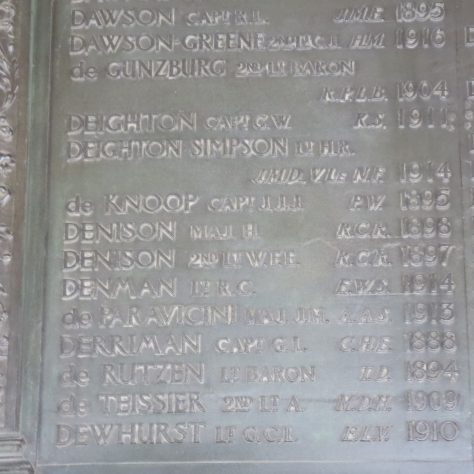 DAWSON CAPT R.L. J.M.E. 1895
DAWSON-GREENE 2ND LT C.J. H.M. 1916
de GUNZBURG 2ND LT BARON
R.P.L.B. 1904
DEIGHTON CAPT G.W. K.S. 1911
DEIGHTON SIMPSON LT H.R.
1914
de KNOOP CAPT J.J.J. P.W. 1895
DENISON MAJ. H. R.C.R. 1898
DENISON 2ND LT W.F.E. R.C.R. 1897
DENMAN LT R.C. 1914
de PARAVICINI MAJ. J.M. A.A.S. 1915
DERRIMAN CAPT G.L. 1888
de RUTZEN LT BARON 1894
de TEISSIER 2ND LT A. 1909
DEWHURST LT G.C.L. 1910